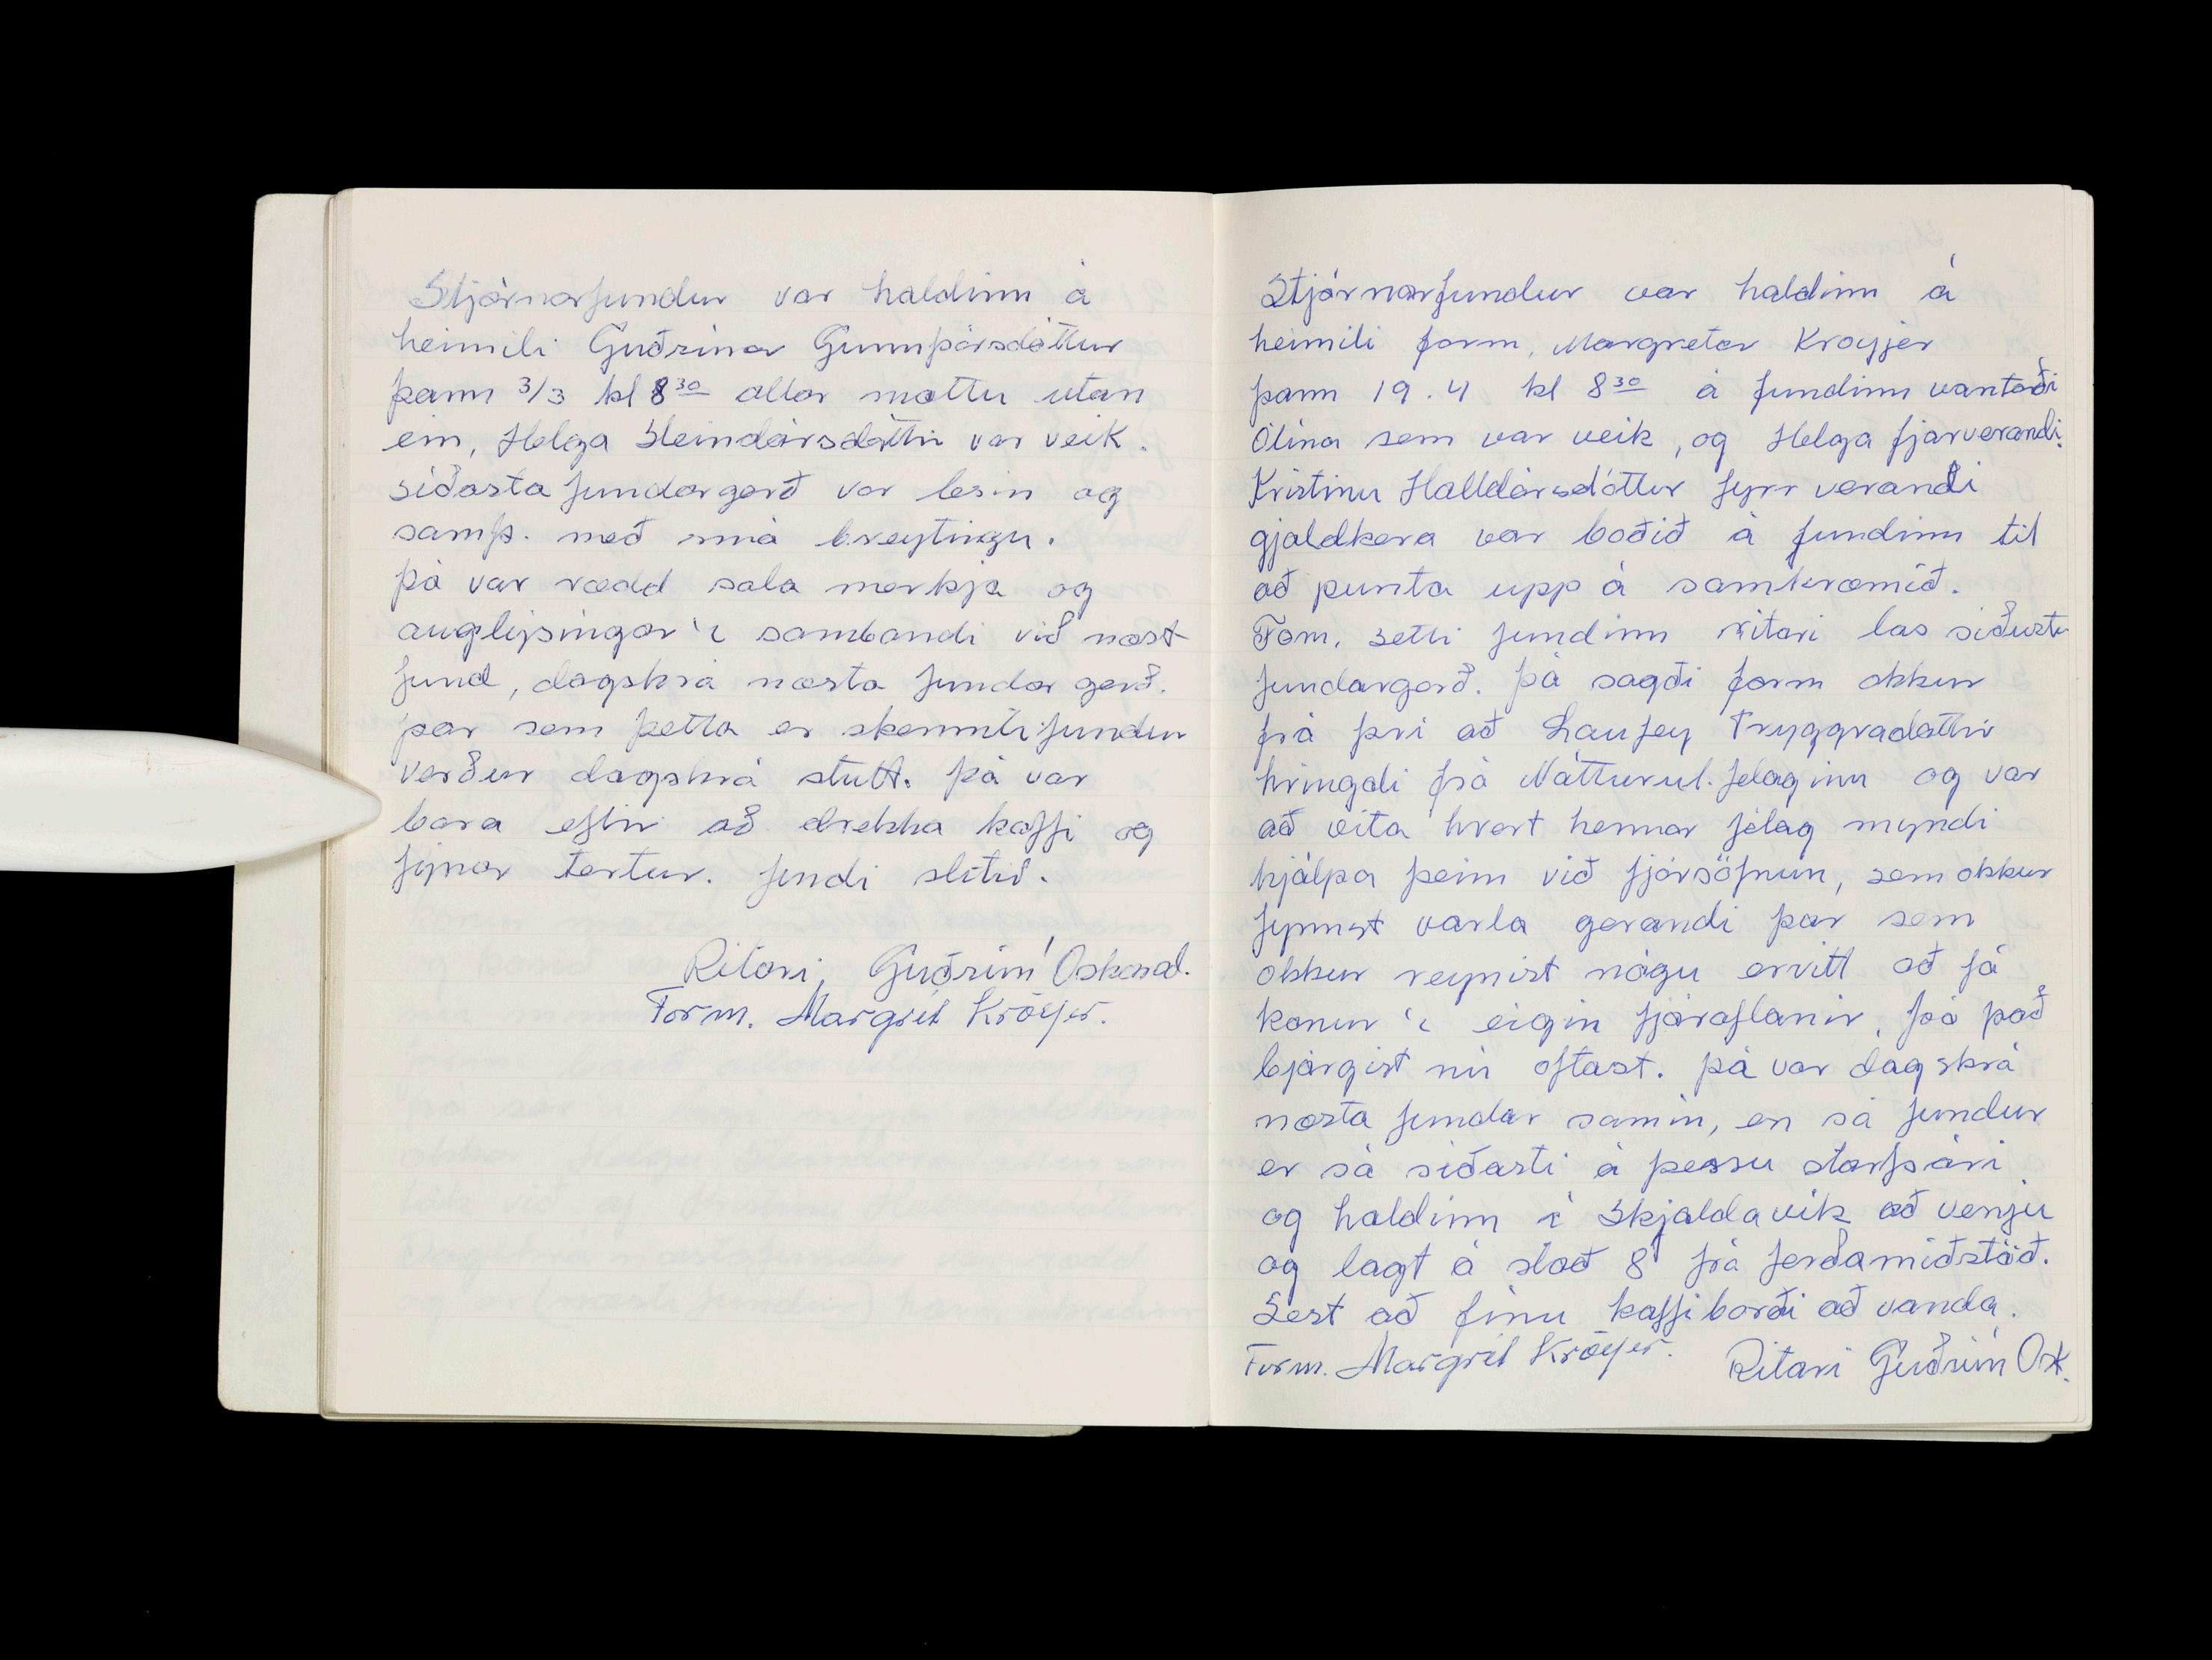 Stjórnarfundur var haldinn á
heimili Guðrúnar Gunnþórsdóttur
þann 3/3 kl 8³⁰ allar mættu utan
ein, Helga Steindórsdóttir var veik.
síðasta fundargerð var lesin og
samþ. með smá breytingu.
þá var rædd sala merkja og
auglýsingar í sambandi við næst
fund, dagskrá næsta fundar gerð.
þar sem þetta er skemmtifundur
verður dagskrá stutt. þá var
bara eftir að drekka kaffi og
fýnar tertur. fundi slitið.
Ritari, Guðrún Óskarsd.
Form. Margrét Kröyer.
Stjórnarfundur var haldinn á
heimili form, Margretar Kroyjer
þann 19.4 kl 8³⁰ á fundinn vantaði
Ólína sem var veik, og Helga fjarverandi.
Kristínu Halldórsdóttur fyrr verandi
gjaldkera var boðið á fundinn til
að punta upp á samkvæmið.
Fom. setti fundinn ritari las síðustu
fundargerð. þá sagði form okkur
frá því að Laufey Tryggvadóttir
hringdi frá Nátturul. felaginu og var
að vita hvort hennar félag myndi
hjálpa þeim við fjársöfnun, sem okkur
fynnst varla gerandi þar sem
okkur reynist nógu ervitt að fá
konur í eigin fjáraflanir, þó það
bjargist nú oftast. þá var dagskrá
næsta fundar samin, en sá fundur
er sá síðasti á þessu starfsári
og haldinn í Skjaldavík að venju
og lagt á stað 8 frá ferðamiðstöð.
Sest að fínu kaffiborði að vanda.
Form. Margrét Kröyer. Ritari Guðrún Ósk.